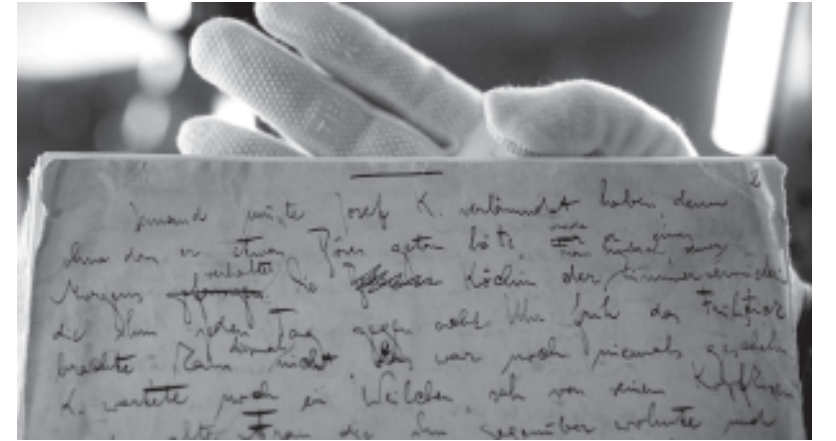 2
Jemand musste Josef K. verläumdet haben, denn
ohne dass er etwas Böses getan hätte, wurde er eines
verhaftet
Morgens gefangen. Die Köchin der
die ihm jeden Tag gegen acht Uhr früh das Frühstück
diesmal
brachte kam nicht. Das war noch niemals geschehn
K. wartete noch ein Weilchen, sah von seinem Kopfkissen
alte Frau die ihm gegenüber wohnte und